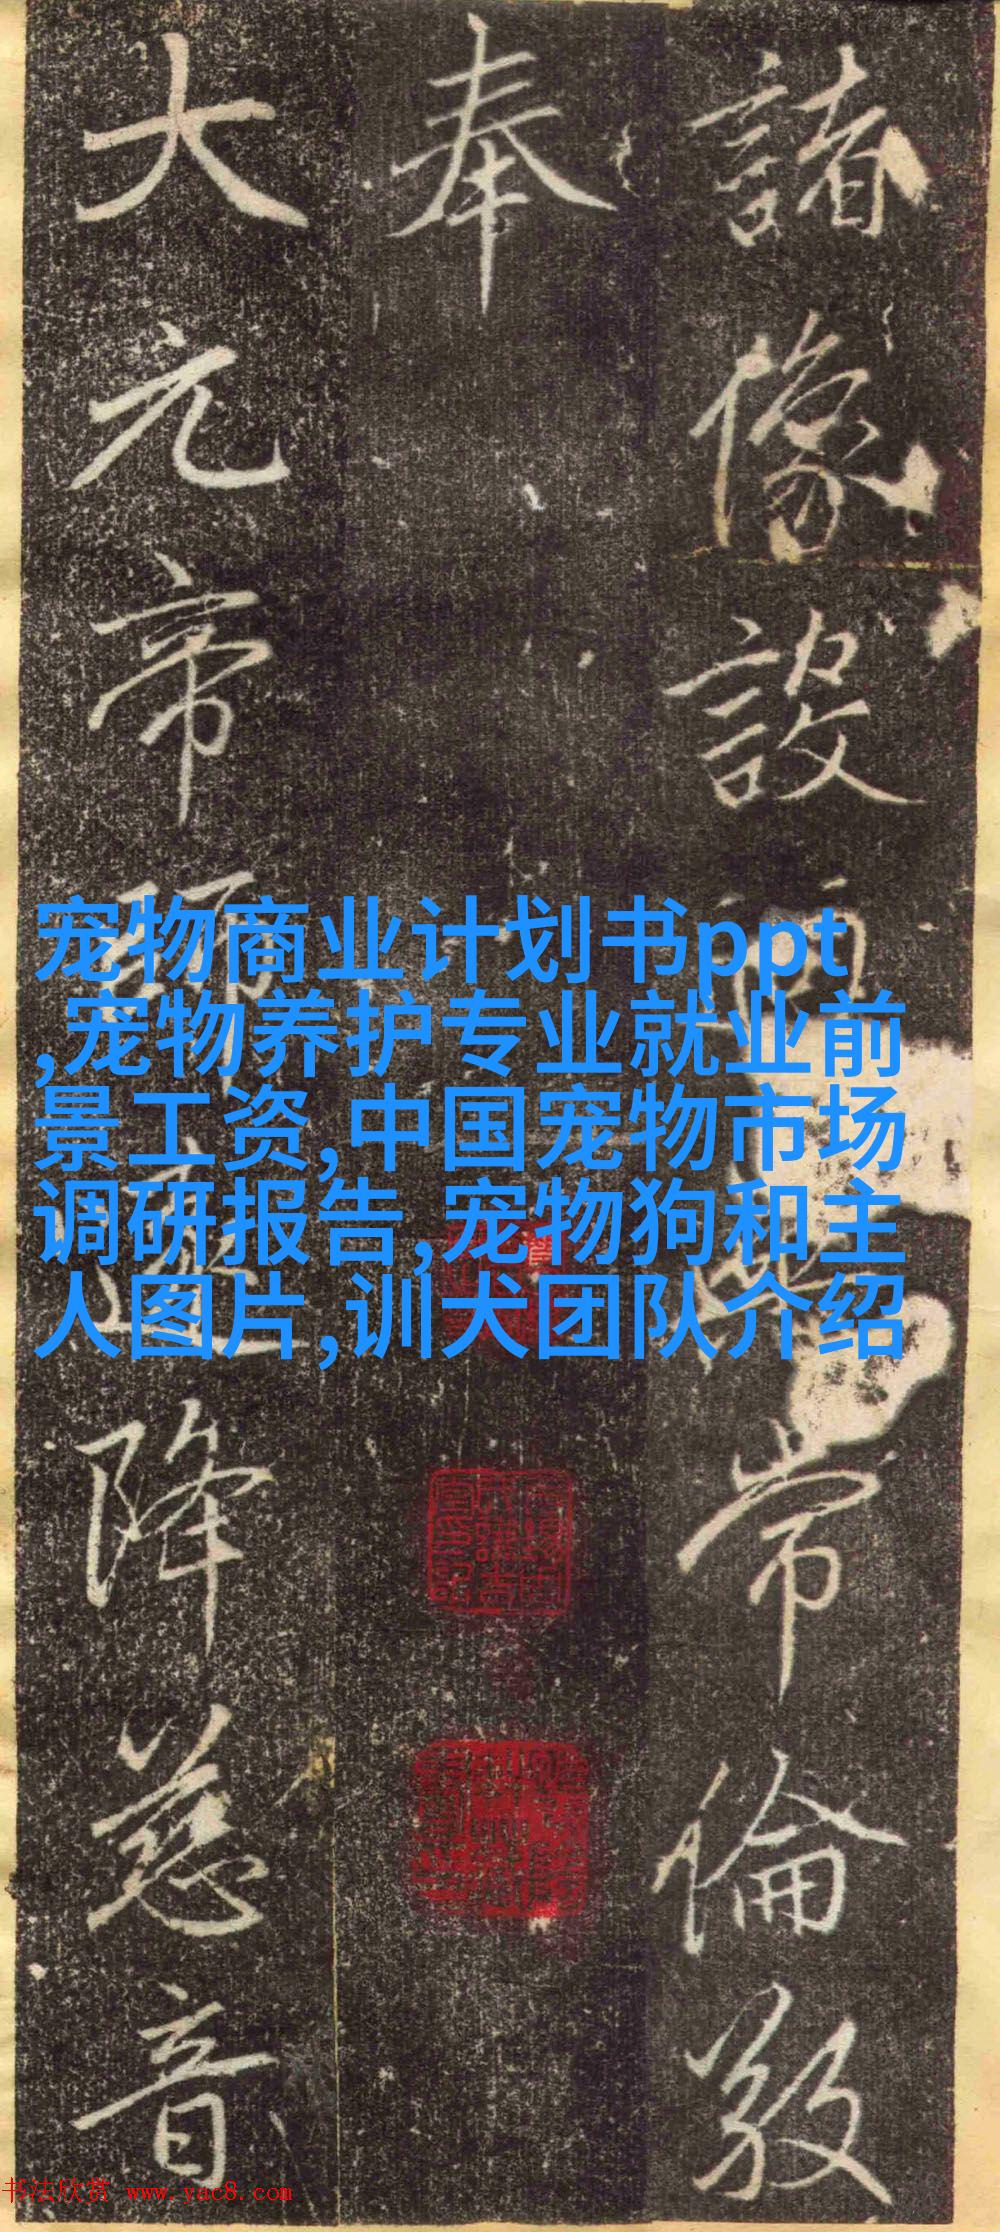 諸像設常倫
奉
大元帝降慈音
宠物商业计划书ppt
,宠物养护专业就业前
景工资,中国宠物市场
调研报告,宠物狗和主
人图片,训犬团队介绍
书法欣赏 www.yac8.com